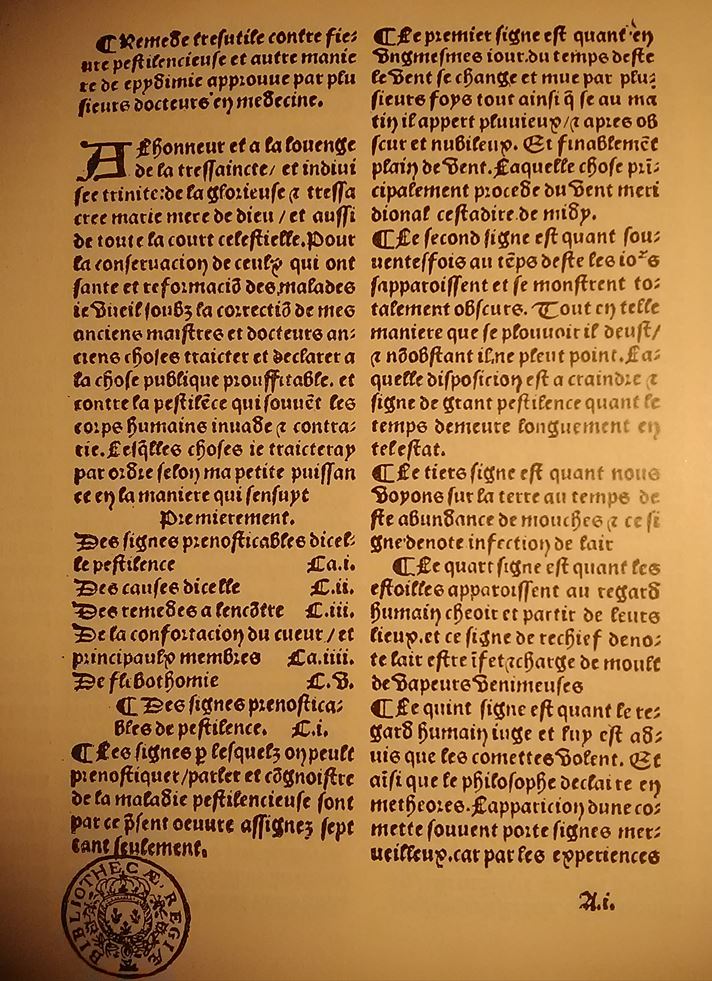 ¶ Remede tresutile contre fie-
ure pestilencieuse et autre manie
re de epydimie approuue par plu
sieurs docteurs en medecine.
A Lhonneur et a la louenge
de la tressaincte/ et indiui
see trinite:de la glorieuse ⁊ tressa
cree marie mere de dieu / et aussi
de toute la court celestielle.Pour
la conseruacion de ceulx qui ont
sante et reformaciō des malades
ie vueil soubz la correctiō de mes
anciens maistres et docteurs an-
ciens choses traicter et declarer a
la chose publique prouffitable. et
contre la pestilēce qui souuēt les
corps humains inuade ⁊ contra-
rie.Lesq̄lles choses ie traicteray
par ordre selon ma petite puissan
ce en la maniere qui sensuyt
Premierement.
Des signes prenosticables dicel-
le pestilence Ca.i.
Des causes dicelle C.ii.
Des remedes a lencōtre C.iii.
De la confortacion du cueur / et
principaulx membres Ca.iiii.
De flibothomie C.v.
¶ Des signes prenostica-
bles de pestilence. C.i.
¶ Les signes ꝑ lesquelz on peult
prenostiquer/parler et cōgnoistre
de la maladie pestilencieuse sont
par ce p̄sent oeuure assignez sept
tant seulement.
BIBLIOTHECÆ REGIÆ
¶ Le premier signe est quant en
vngmesmes iour.du temps deste
le vent se change et mue par plu-
sieurs foys tout ainsi q̄ se au ma
tin il appert pluuieux/⁊ apres ob
scur et nubileux. Et finablemēt
plain de vent.Laquelle chose prī-
cipalement procede du vent meri
dional cestadire.de midy.
¶ Le second signe est quant sou-
uentesfois au tēps deste les ioꝛs
sapparoissent et se monstrent to-
talement obscurs. Tout en telle
maniere que se plouuoir il deust/
⁊ nōobstant il.ne pleut point.La-
quelle disposicion est a craindre ⁊
signe de grant pestilence quant le
temps demeure longuement en
tel estat.
¶ Le tiers signe est quant nous
voyons sur la terre au temps de
ste abundance de mouches ⁊ ce si
gne denote infection de lair
¶ Le quart signe est quant les
estoilles apparoissent au regard
humain cheoir et partir de leurs
lieux.et ce signe de rechief deno-
te lair estre īfet⁊charge de moult
de vapeurs venimeuses
¶ Le quint signe est quant le re-
gard humain iuge et luy est ad-
uis que les comettes volent. Et
aīsi que le philosophe declaire en
metheores.Lapparicion dune co-
mette souuent porte signes mer-
ueilleux.car par les experiences
A.i.